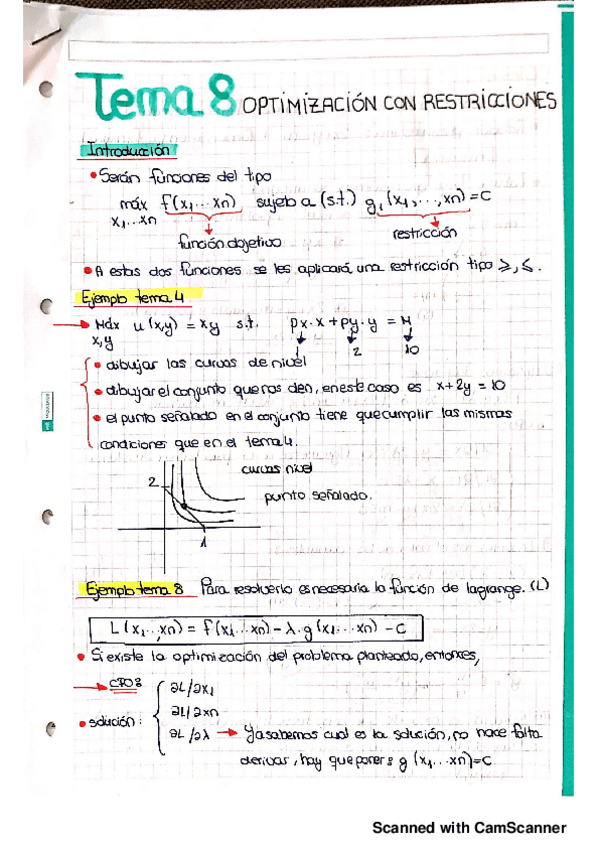 Tema 8 OPTIMIZACIÓN CON RESTRICCIONES
Introducción
• Serán funciones del tipo
máx f(x₁...xn) sujeto a (s.t.) g₁(x₁,...,xn) = C
x₁...xn
función objetivo
restricción
• A estas dos funciones se les aplicará una restricción tipo ≥, ≤.
Ejemplo tema 4
→ Máx u(x,y) = xy s.t. px·x + py·y = M
x,y
1 2 10
• dibujar las curvas de nivel
• dibujar el conjunto que nos den, en este caso es x+2y = 10
• el punto señalado en el conjunto tiene que cumplir las mismas
condiciones que en el tema 4.
curvas nivel
2
punto señalado.
1
Ejemplo tema 8 Para resolverlo es necesaria la función de lagrange. (L)
L(x₁...,xn) = f(x₁...xn) - λ·g(x₁...xn) - C
• Si existe la optimización del problema planteado, entonces,
→ CPO:
∂L/∂x₁
• solución: ∂L/∂xn
∂L/∂λ → Ya sabemos cual es la solución, no hace falta
derivar, hay que poner: g(x₁...xn)=C
Scanned with CamScanner